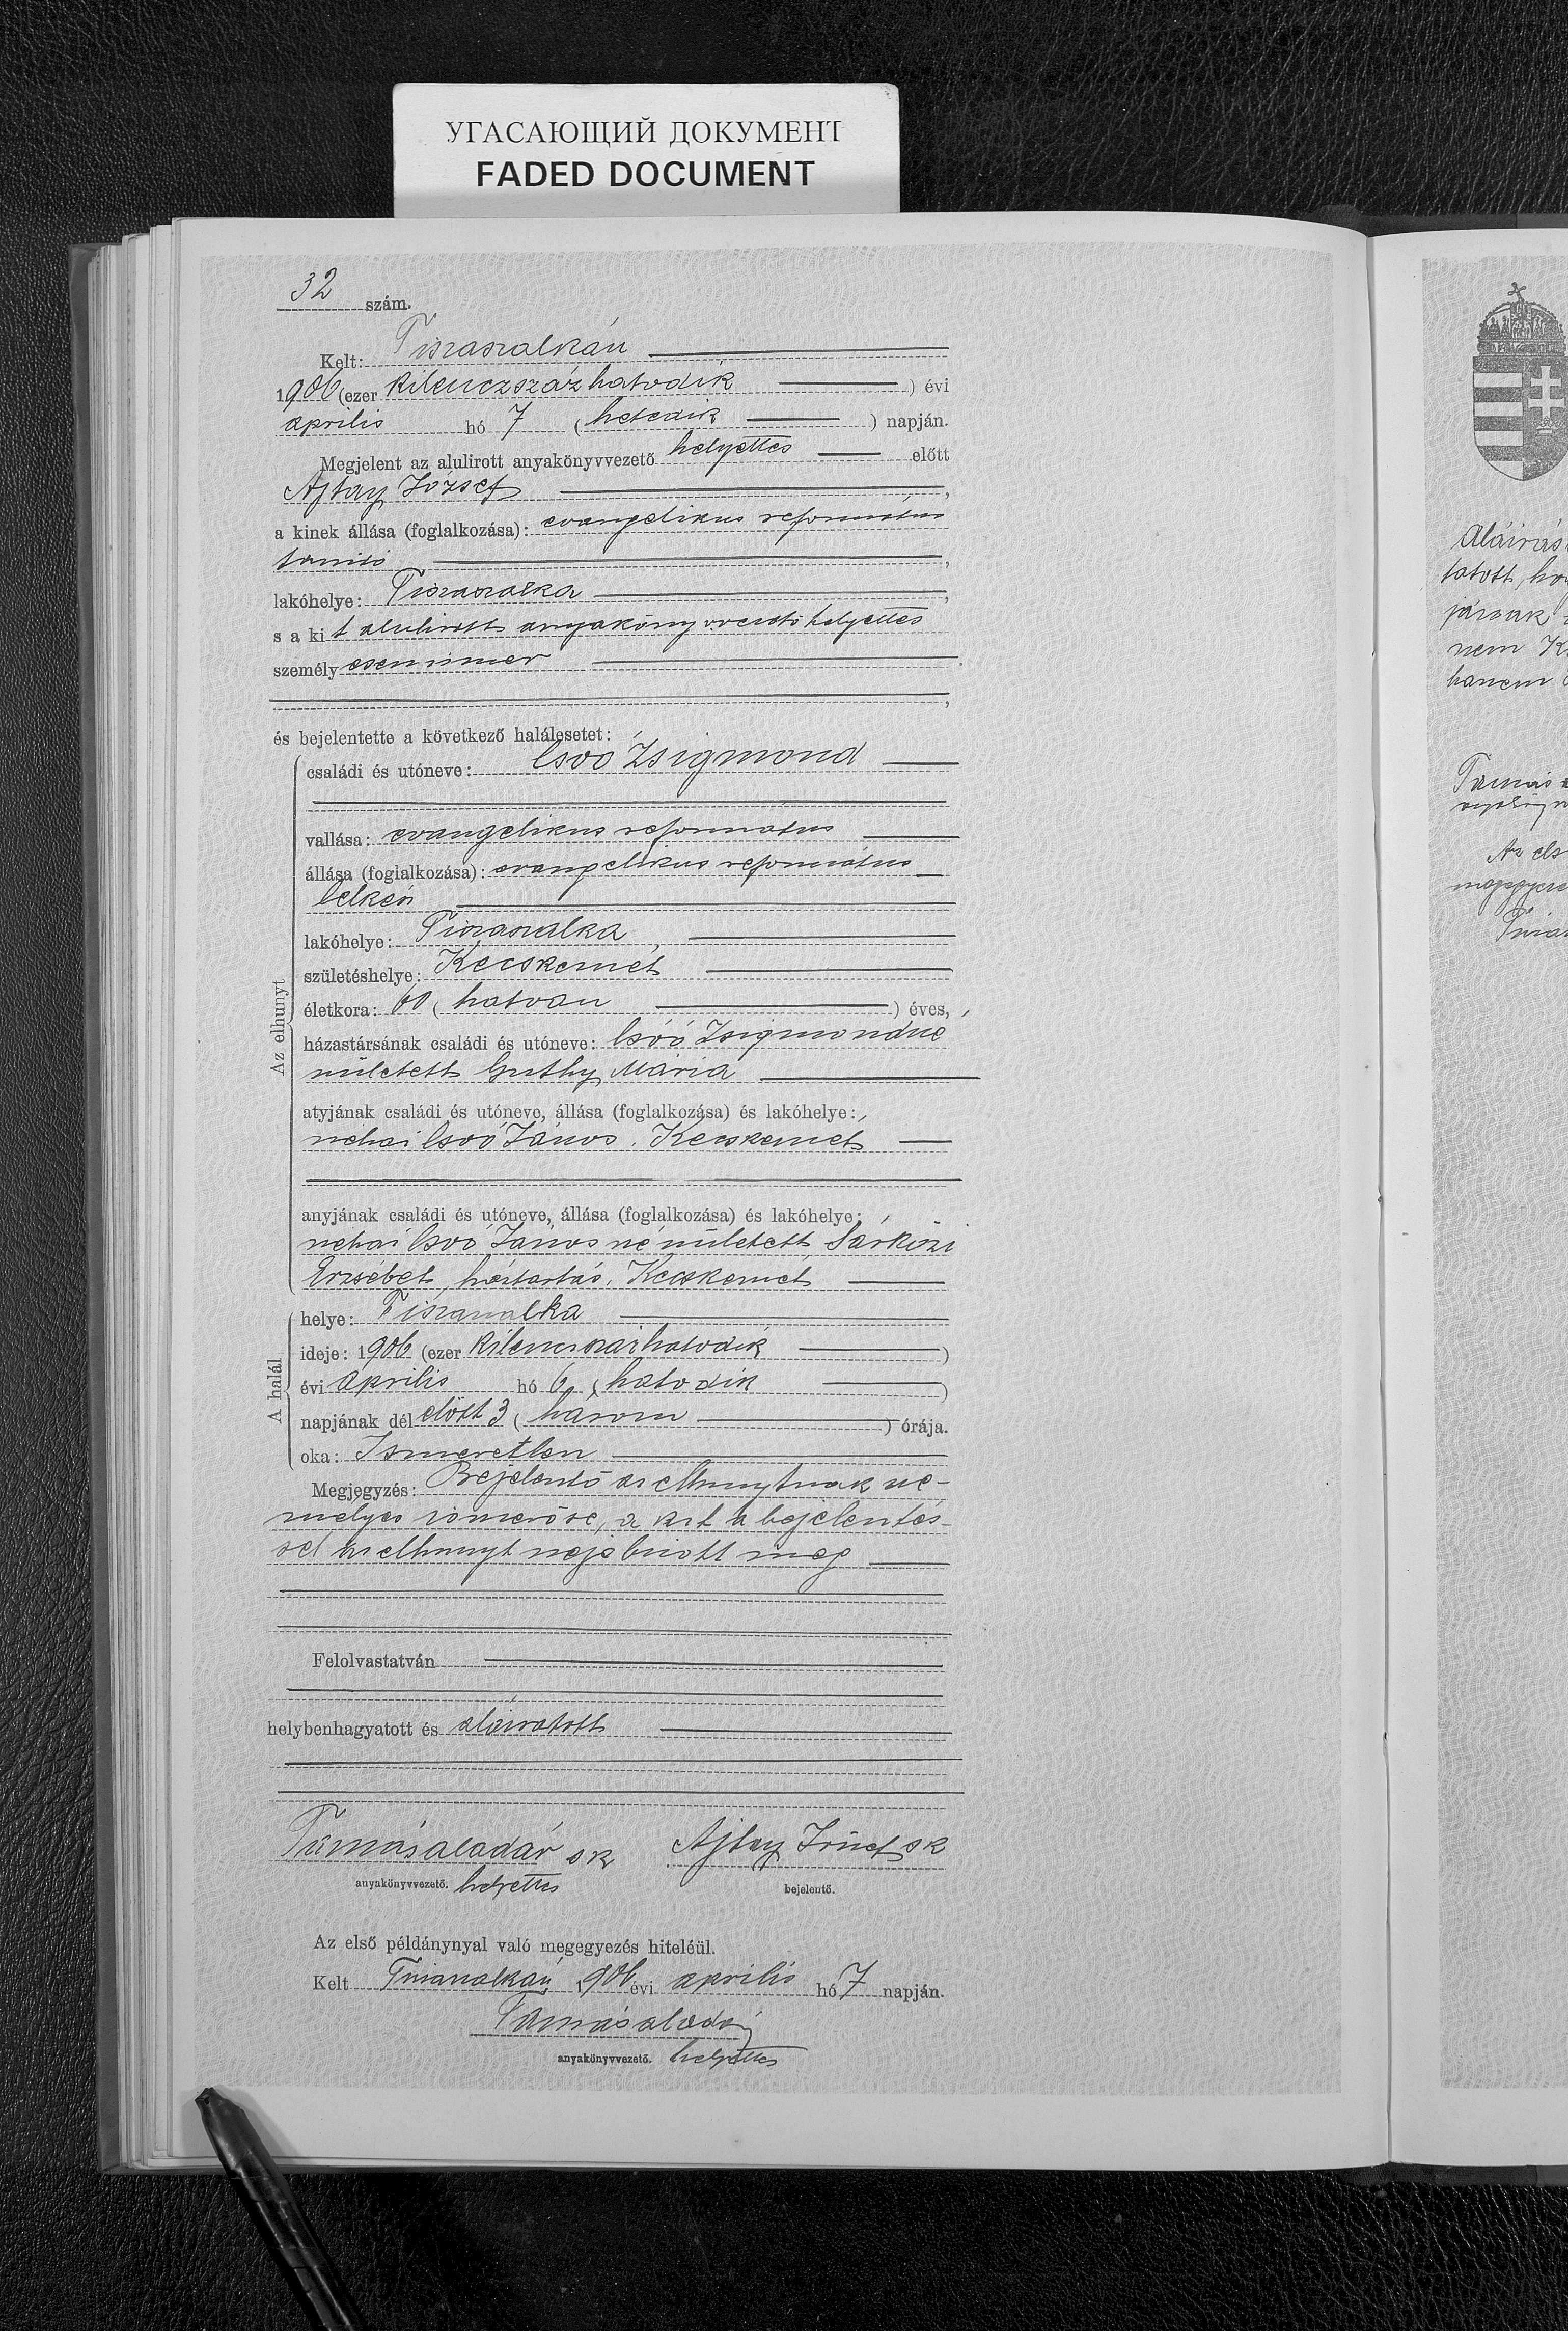 УГАСАЮЩИЙ ДОКУМЕНТ
FADED DOCUMENT
32 szám.
Kelt: Tiszaszalkán
1906 (ezer kilenczszázhatodik ) évi
április hó 7 ( hetedik ) napján.
Megjelent az alulirott anyakönyvvezető helyettes előtt
Ajtay József ,
a kinek állása (foglalkozása): evangelikus református
tanitó ,
lakóhelye: Tiszaszalka ,
s a kit alulirott anyakönyvvezető helyettes
személyesen ismer
,
és bejelentette a következő halálesetet:
Az elhunyt
családi és utóneve: Csvó Zsigmond
vallása: evangelikus református
állása (foglalkozása): evangelikus református
lelkész
lakóhelye: Tiszaszalka
születéshelye: Kecskemét
életkora: 60 ( hatvan ) éves,
házastársának családi és utóneve: Csóó Zsigmondné
született Guthy Mária
atyjának családi és utóneve, állása (foglalkozása) és lakóhelye:
néhai Csóó János, Kecskemét
anyjának családi és utóneve, állása (foglalkozása) és lakóhelye:
néhai Csóó Jánosné született Sárközi
Erzsébet, háztartás, Kecskemét
A halál
helye: Tiszaszalka
ideje: 1906 (ezer kilenczszázhatodik )
évi április hó 6 ( hatodik )
napjának dél előtt 3 ( három ) órája.
oka: Ismeretlen
Megjegyzés: Bejelentő az elhunytnak sze-
mélyes ismerőse, a kit a bejelentés-
sel az elhunyt neje bizott meg
Felolvastatván
helybenhagyatott és aláiratott
Tamás Aladár sk Ajtay József sk
anyakönyvvezető. helyettes bejelentő.
Az első példánynyal való megegyezés hiteléül.
Kelt Tiszaszalkán, 1906 évi április hó 7 napján.
Tamás Aladár
anyakönyvvezető. helyettes
Aláirás
tatott, ho
nem K
hanem
Tamás
Az els
megegyezé